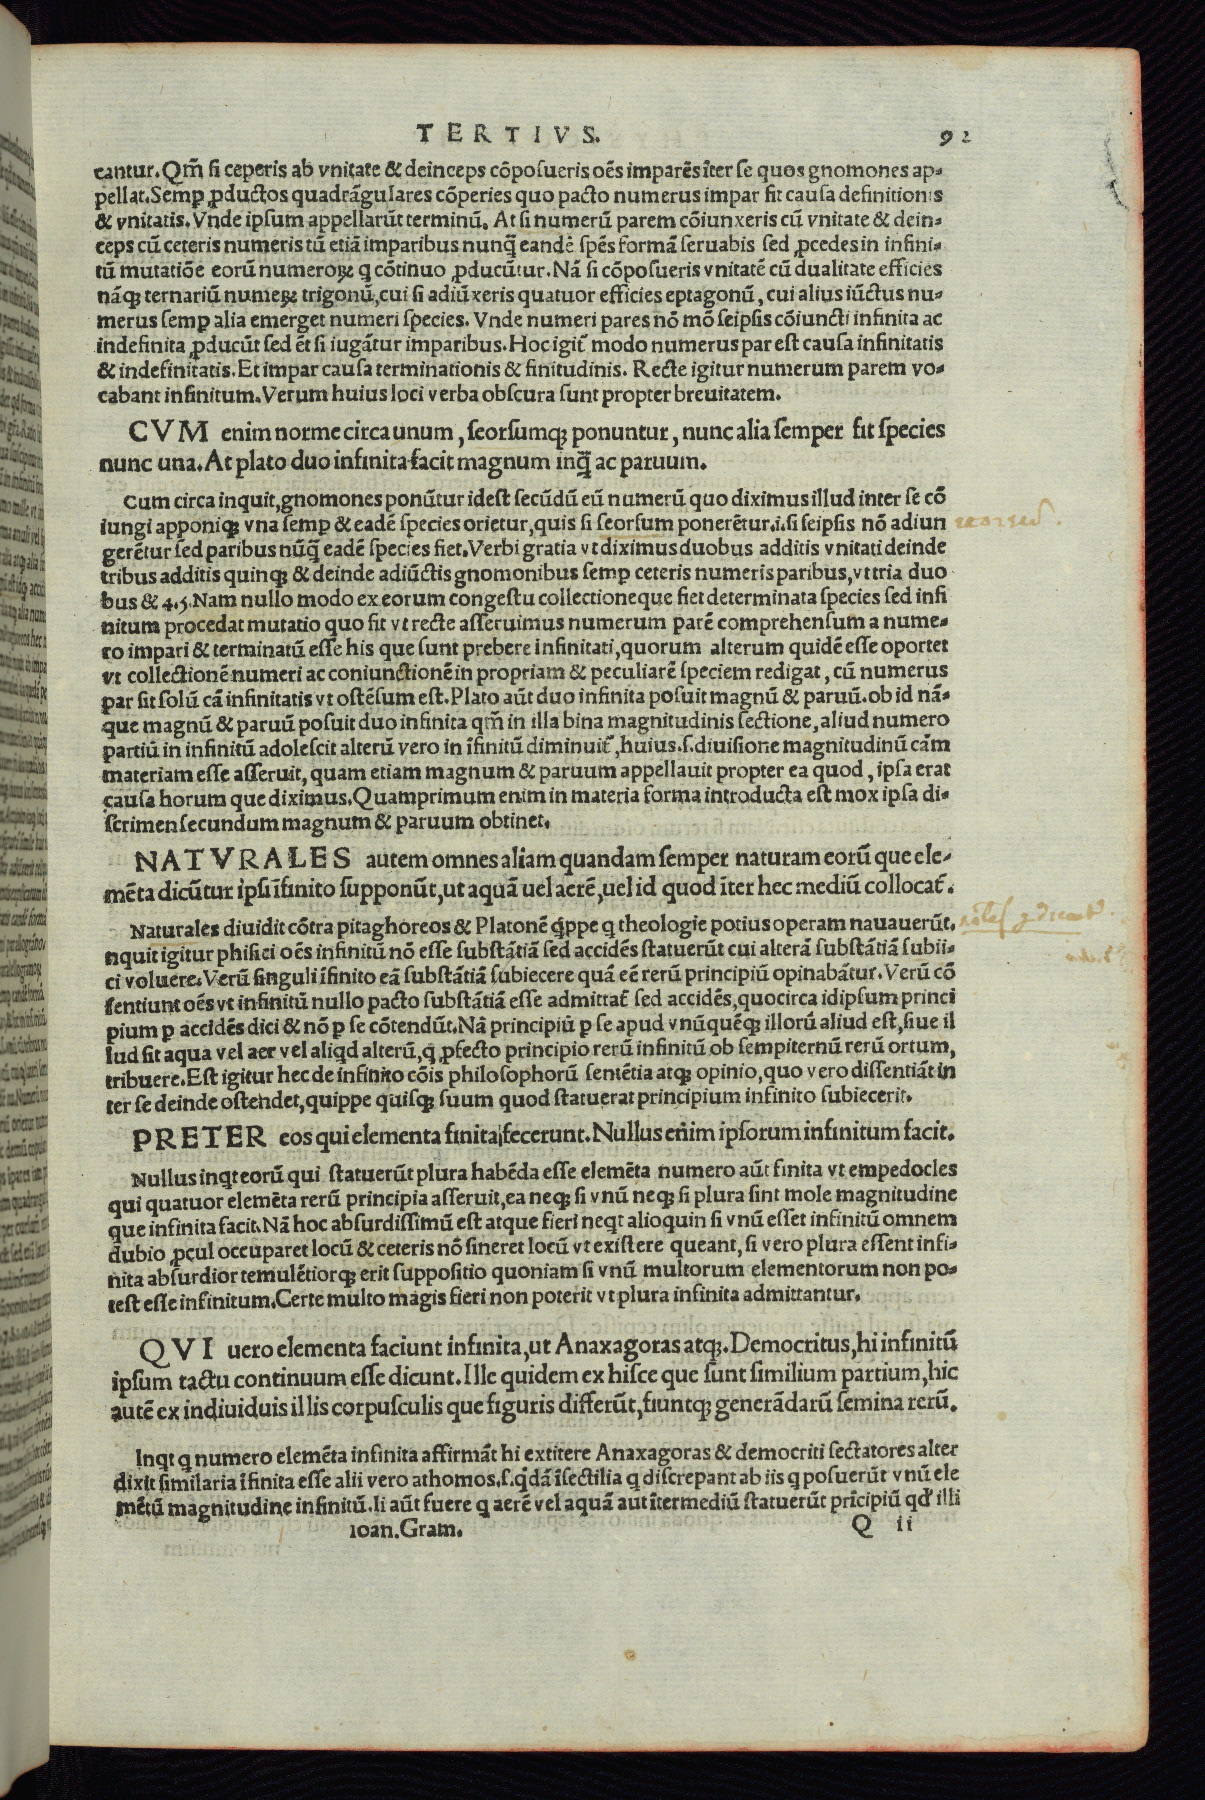 TERTIVS. 92
cantur. Qm̃ si ceperis ab vnitate & deinceps cõposueris oẽs imparẽs ĩter se quos gnomones ap-
pellat. Semꝑ ꝓductos quadrãgulares cõperies quo pacto numerus impar fit causa definitionis
& vnitatis. Vnde ipsum appellarũt terminũ. At si numerũ parem cõiunxeris cũ vnitate & dein-
ceps cũ ceteris numeris tũ etiã imparibus nunq̃ eandẽ spẽs formã seruabis sed ꝓcedes in infini-
tũ mutatiõe eorũ numeroꝝ q̃ cõtinuo ꝓducũtur. Nã si cõposueris vnitatẽ cũ dualitate efficies
nãqꝫ ternariũ numeꝝ trigonũ, cui si adiũxeris quatuor efficies eptagonũ, cui alius iũctus nu-
merus semꝑ alia emerget numeri species. Vnde numeri pares nõ mõ seipsis cõiuncti infinita ac
indefinita ꝓducũt sed ẽt si iugãtur imparibus. Hoc igit̃ modo numerus par est causa infinitatis
& indefinitatis. Et impar causa terminationis & finitudinis. Recte igitur numerum parem vo-
cabant infinitum. Verum huius loci verba obscura sunt propter breuitatem.
CVM enim norme circa unum, seorsumqꝫ ponuntur, nunc alia semper fit species
nunc una. At plato duo infinita facit magnum inq̃ ac paruum.
Cum circa inquit, gnomones ponũtur idest secũdũ eũ numerũ quo diximus illud inter se cõ
iungi apponiqꝫ vna semꝑ & eadẽ species orietur, quis si seorsum ponerẽtur. i. si seipsis nõ adiun
gerẽtur sed paribus nũq̃ eadẽ species fiet. Verbi gratia vt diximus duobus additis vnitati deinde
tribus additis quinqꝫ & deinde adiũctis gnomonibus semꝑ ceteris numeris paribus, vt tria duo
bus & 4. 5. Nam nullo modo ex eorum congestu collectioneque fiet determinata species sed infi
nitum procedat mutatio quo fit vt recte asseruimus numerum parẽ comprehensum a nume-
ro impari & terminatũ esse his que sunt prebere infinitati, quorum alterum quidẽ esse oportet
vt collectionẽ numeri ac coniunctionẽ in propriam & peculiarẽ speciem redigat, cũ numerus
par sit solũ cã infinitatis vt ostẽsum est. Plato aũt duo infinita posuit magnũ & paruũ. ob id nã-
que magnũ & paruũ posuit duo infinita qm̃ in illa bina magnitudinis sectione, aliud numero
partiũ in infinitũ adolescit alterũ vero in ĩfinitũ diminuit̃, huius. s. diuisione magnitudinũ cãm
materiam esse asseruit, quam etiam magnum & paruum appellauit propter ea quod, ipsa erat
causa horum que diximus. Quamprimum enim in materia forma introducta est mox ipsa di-
scrimen secundum magnum & paruum obtinet.
NATVRALES autem omnes aliam quandam semper naturam eorũ que ele-
mẽta dicũtur ipsi ĩfinito supponũt, ut aquã uel aerẽ, uel id quod ĩter hec mediũ collocat̃.
Naturales diuidit cõtra pitaghoreos & Platonẽ q̃ppe q theologie potius operam nauauerũt.
nquit igitur phisici oẽs infinitũ nõ esse substãtiã sed accidẽs statuerũt cui alterã substãtiã subii-
ci voluere. Verũ singuli ĩfinito eã substãtiã subiecere quã eẽ rerũ principiũ opinabãtur. Verũ cõ
sentiunt oẽs vt infinitũ nullo pacto substãtiã esse admittat̃ sed accidẽs, quocirca idipsum princi
pium ꝑ accidẽs dici & nõ ꝑ se cõtendũt. Nã principiũ ꝑ se apud vnũquẽqꝫ illorũ aliud est, siue il
lud sit aqua vel aer vel aliq̃d alterũ, q̃ ꝓfecto principio rerũ infinitũ ob sempiternũ rerũ ortum,
tribuere. Est igitur hec de infinito cõis philosophorũ sentẽtia atqꝫ opinio, quo vero dissentiãt in
ter se deinde ostendet, quippe quisqꝫ suum quod statuerat principium infinito subiecerit.
PRETER eos qui elementa finita fecerunt. Nullus enim ipsorum infinitum facit.
Nullus inq̃t eorũ qui statuerũt plura habẽda esse elemẽta numero aũt finita vt empedocles
qui quatuor elemẽta rerũ principia asseruit, ea neqꝫ si vnũ neqꝫ si plura sint mole magnitudine
que infinita facit. Nã hoc absurdissimũ est atque fieri neq̃t alioquin si vnũ esset infinitũ omnem
dubio ꝓcul occuparet locũ & ceteris nõ sineret locũ vt existere queant, si vero plura essent infi-
nita absurdior temulẽtiorqꝫ erit suppositio quoniam si vnũ multorum elementorum non po-
test esse infinitum. Certe multo magis fieri non poterit vt plura infinita admittantur.
QVI uero elementa faciunt infinita, ut Anaxagoras atqꝫ. Democritus, hi infinitũ
ipsum tactu continuum esse dicunt. Ille quidem ex hisce que sunt similium partium, hic
autẽ ex indiuiduis illis corpusculis que figuris differũt, fiuntqꝫ generãdarũ semina rerũ.
Inq̃t q numero elemẽta infinita affirmãt hi extitere Anaxagoras & democriti sectatores alter
dixit similaria ĩfinita esse alii vero athomos. s. q̃dã ĩsectilia q̃ discrepant ab iis q̃ posuerũt vnũ ele
mẽtũ magnitudine infinitũ. Ii aũt fuere q̃ aerẽ vel aquã aut ĩtermediũ statuerũt prĩcipiũ qd̃ illi
Ioan. Gram. Q ii